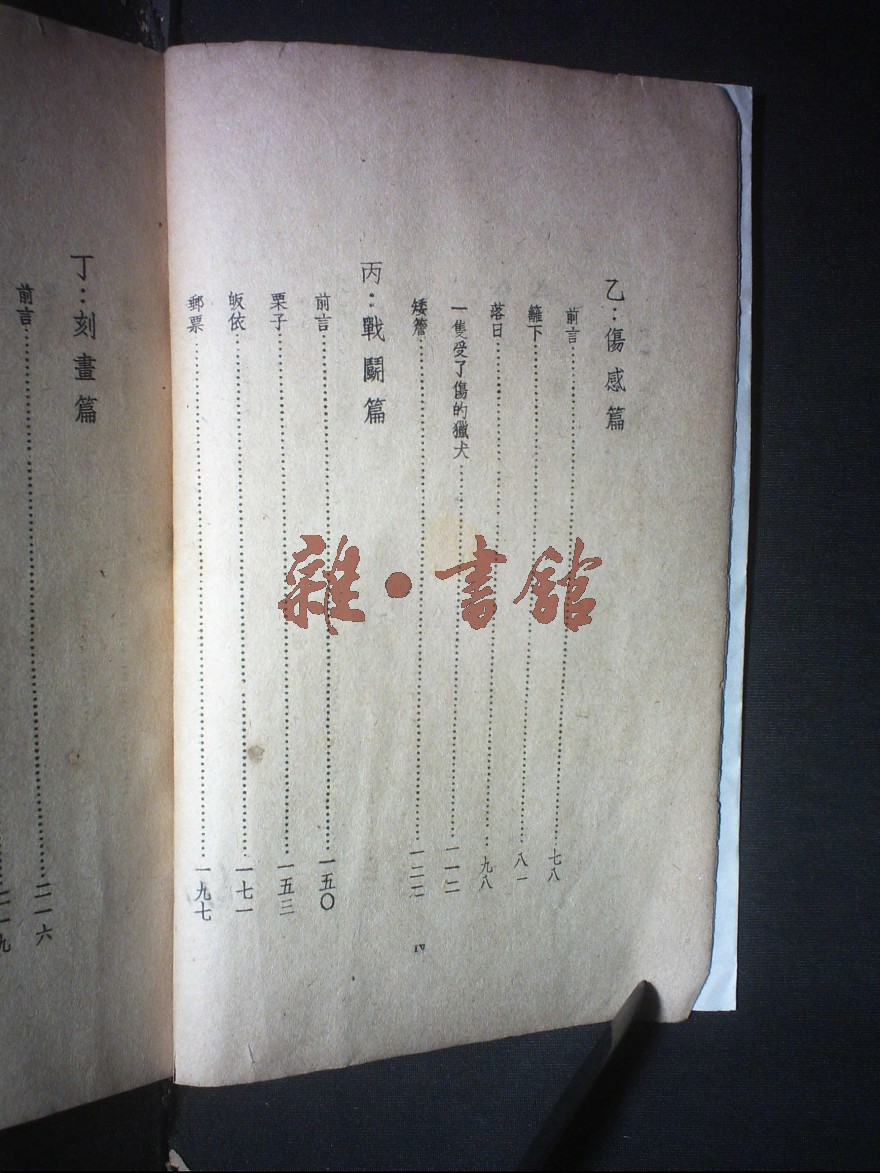 乙：傷感篇
前言……七八
籬下……八一
落日……九八
一隻受了傷的獵犬……一一二
矮簷……一二二
丙：戰鬪篇
前言……一五〇
栗子……一五三
皈依……一七一
郵票……一九七
IV
丁：刻畫篇
前言……二一六
……二一九
雜·書館